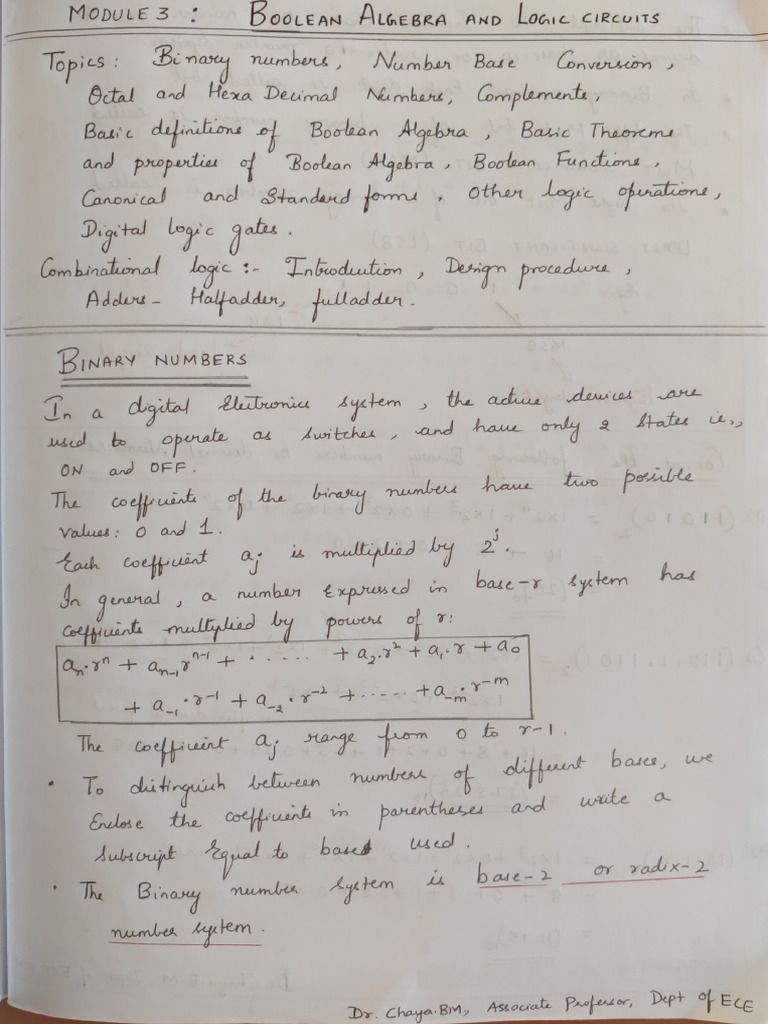 MODULE 3 : BOOLEAN ALGEBRA AND LOGIC CIRCUITS
Topics: Binary numbers, Number Base Conversion,
Octal and Hexa Decimal Numbers, Complements,
Basic definitions of Boolean Algebra, Basic Theorems
and properties of Boolean Algebra, Boolean Functions,
Canonical and Standard forms, Other logic operations,
Digital logic gates.
Combinational logic :- Introduction, Design procedure,
Adders - Halfadder, fulladder.
BINARY NUMBERS
In a digital Electronics system, the active devices are
used to operate as switches, and have only 2 states ie.,
ON and OFF.
The coefficients of the binary numbers have two possible
values: 0 and 1.
Each coefficient aⱼ is multiplied by 2ʲ.
In general, a number Expressed in base-r system has
coefficients multiplied by powers of r:
aₙ·rⁿ + aₙ₋₁rⁿ⁻¹ + ······ + a₂·r² + a₁·r + a₀
+ a₋₁·r⁻¹ + a₋₂·r⁻² + ····· + a₋ₘ·r⁻ᵐ
The coefficient aⱼ range from 0 to r-1.
• To distinguish between numbers of different bases, we
Enclose the coefficients in parentheses and write a
Subscript Equal to base used.
• The Binary number system is base-2 or radix-2
number system.
Dr. Chaya.BM, Associate Professor, Dept of ECE